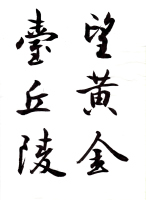 望黃金
臺丘陵